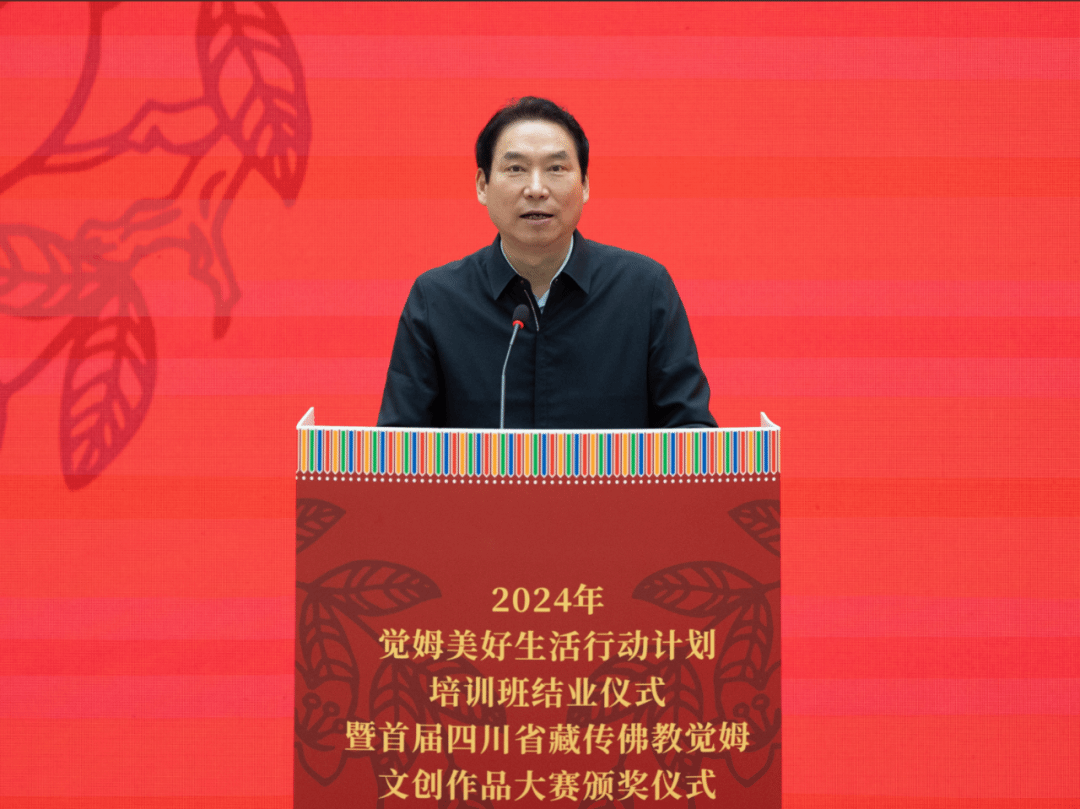 2024年
觉姆美好生活行动计划
培训班结业仪式
暨首届四川省藏传佛教觉姆
文创作品大赛颁奖仪式